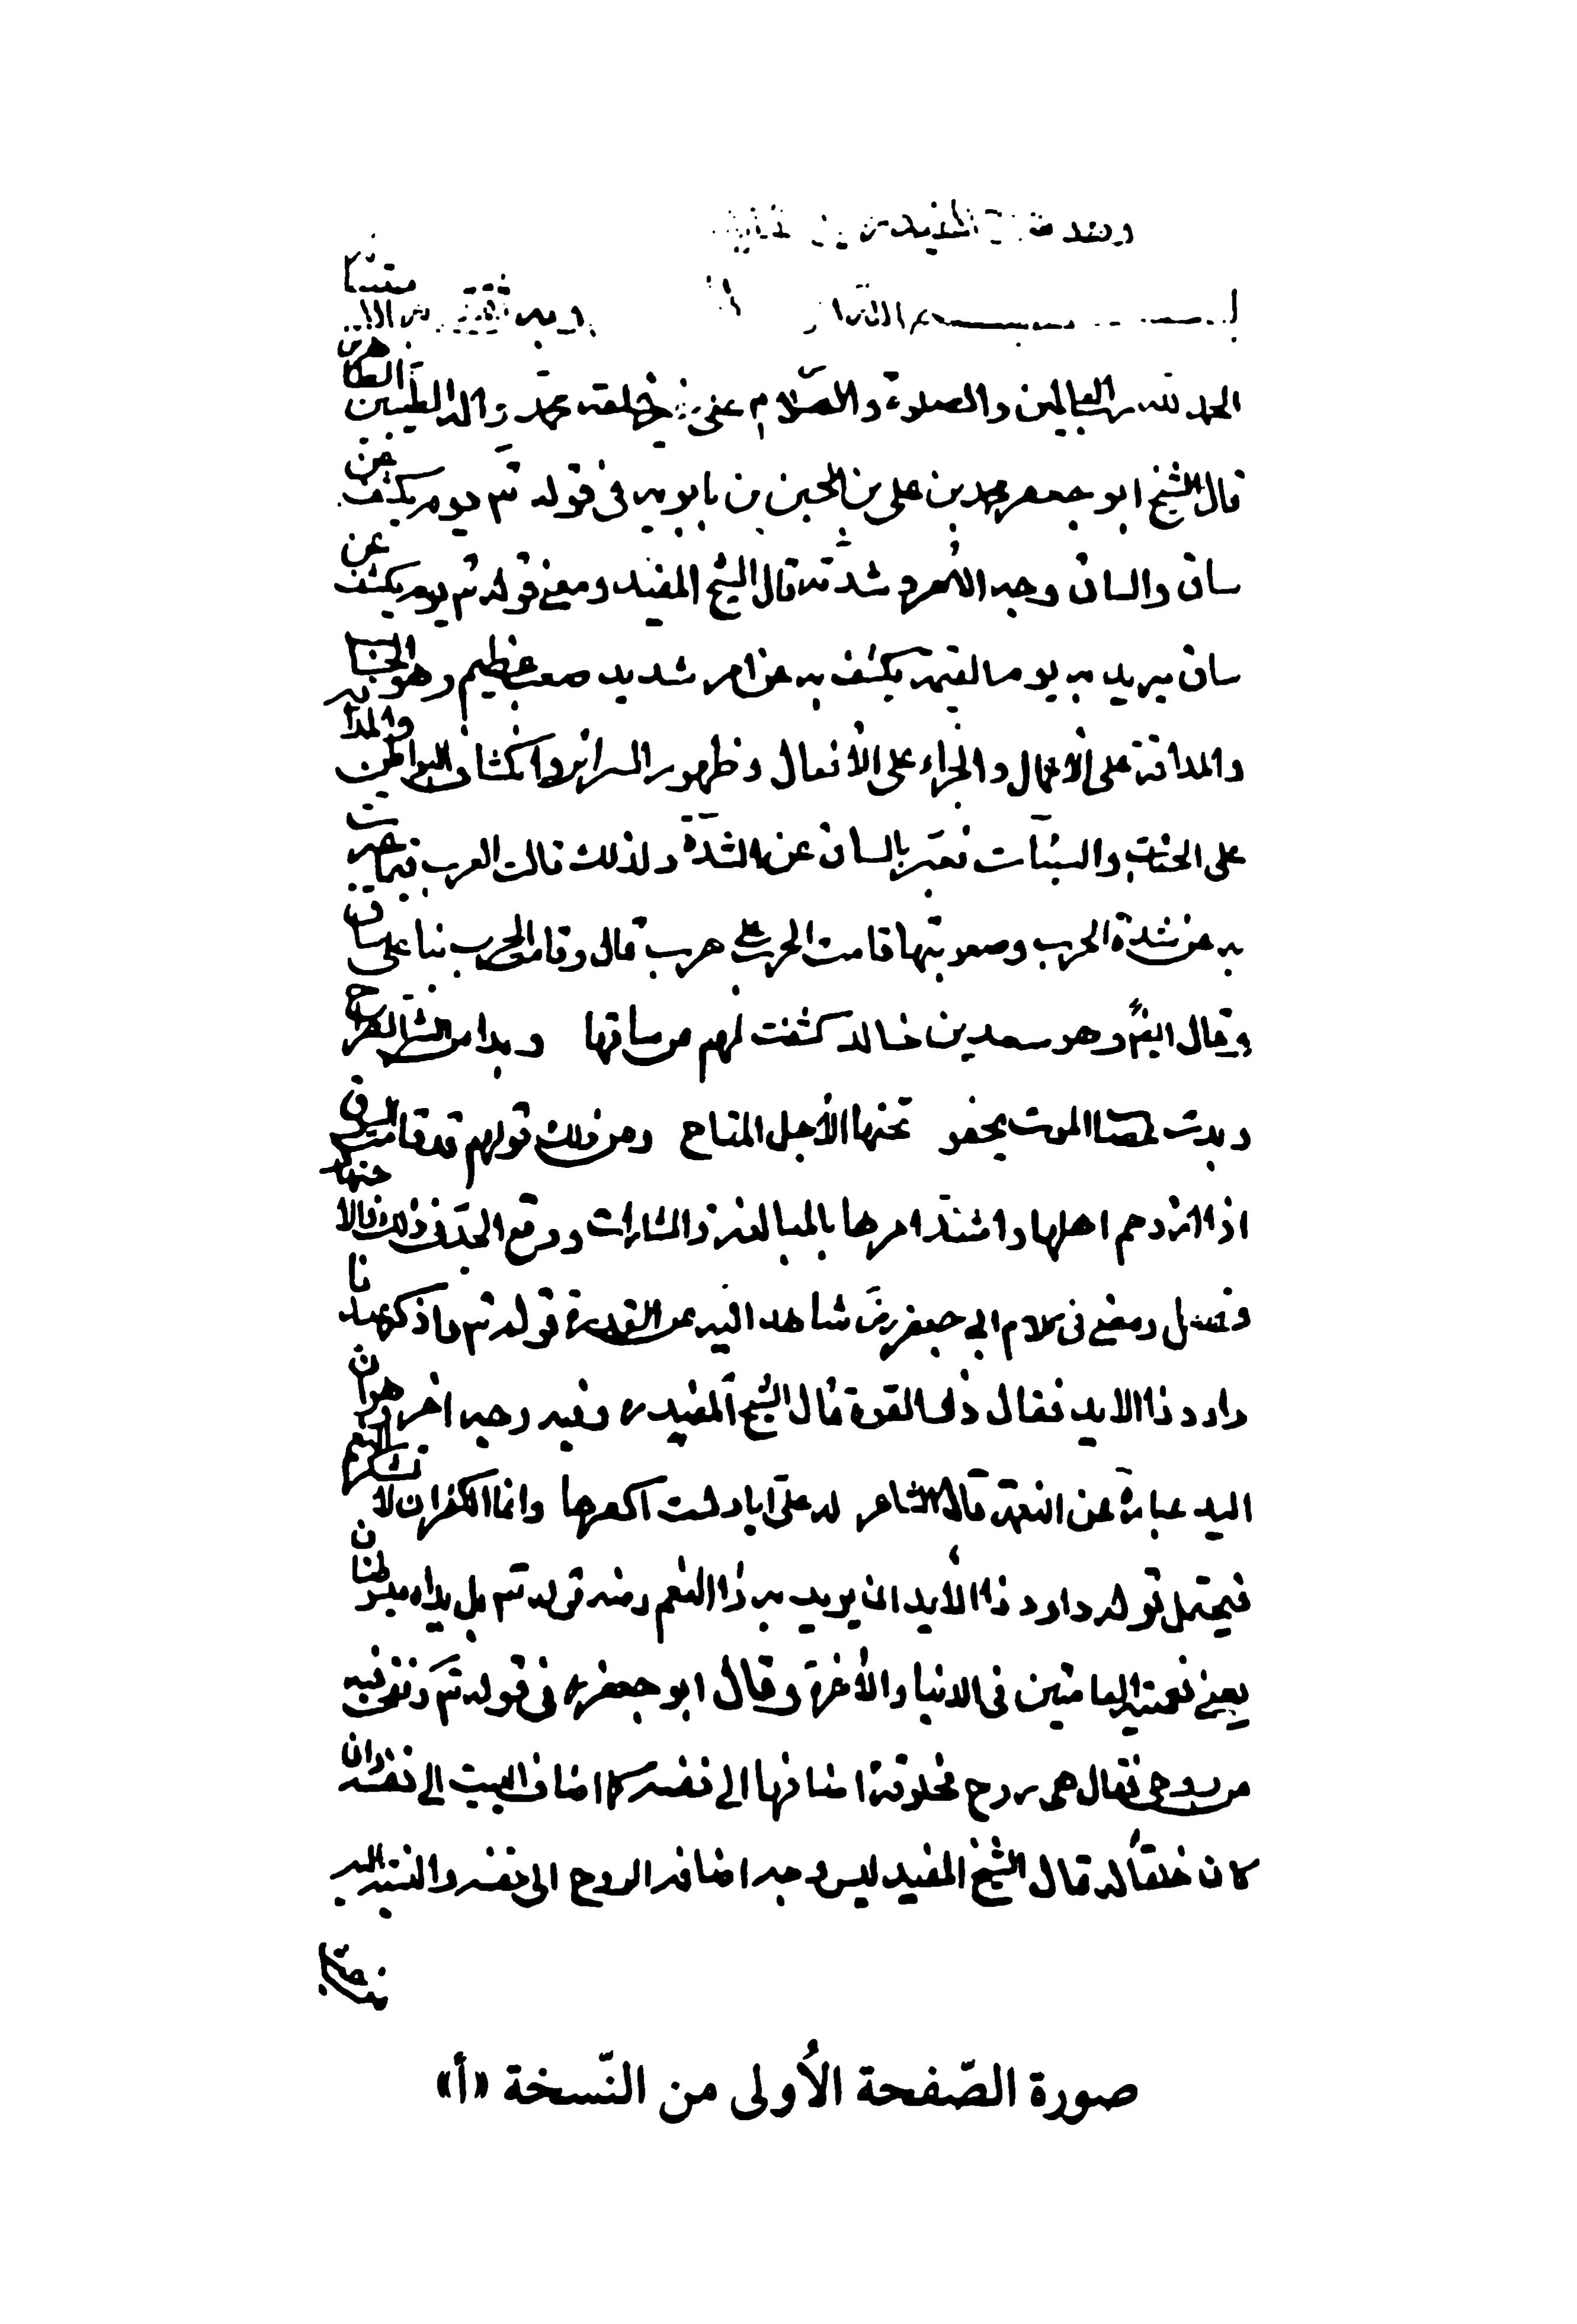 الحمد لله رب العالمين والصلوة والسلام على خلقه محمد واله الطيبين الطاهرين
قال الشيخ ابو جعفر محمد بن علي بن الحسين بن بابويه في قوله تع يوم يكشف عن
ساق والساق وجه الأمر وشدته قال الشيخ المفيد ومعنى قوله تع يوم يكشف عن
ساق يريد به يوم القيمة يكشف به عن امر شديد صعب عظيم وهو الحساب
والمداقة على الأعمال والجزاء على الأفعال وظهور السرائر وانكشاف البواطن والمداقة
على الحسنات والسيئات فعبر بالساق عن الشدة ولذلك قالت العرب فيما عبرت
به عن شدة الحرب وصعوبتها قامت الحرب على هرب قال وقامت الحرب بنا على ساق
وقال ايضا وهو سعد بن خالد كشفت لهم عن ساقها وبدا من الشر الصراح
وبدت الموت يخفو تحتها الأجل المتاح ومن ذلك قولهم قد قامت السوق
اذا ازدحم اهلها واشتد امرها بالمبايعة والمشارات ووقع الجد في ذلك
فصل ومضى في كلام ابي جعفر رض شاهد اليد عن القدرة قوله تع واذكر عبدنا
داود ذا الايد فقال ذا القوة قال الشيخ المفيد ره وفيه وجه اخر وهو ان
اليد عبارة عن النعمة قال الشاعر له علي اياد لست اكفرها وانما الكفران لا تشكر النعم
فيحتمل قوله داود ذا الأيد ان يريد به ذا النعم ومنه قوله تع بل يداه مبسوطتان
يعني نعمتيه العامتين في الدنيا والأخرة وقال ابو جعفر ره في قوله تع ونفخت فيه
من روحي فقال هي روح مخلوقة اضافها الى نفسه كما اضاف البيت الى نفسه وان
كان خلقا له قال الشيخ المفيد ليس وجه اضافة الروح الى نفسه والنسبة اليه
صورة الصّفحة الأُولى من النّسخة «أ»